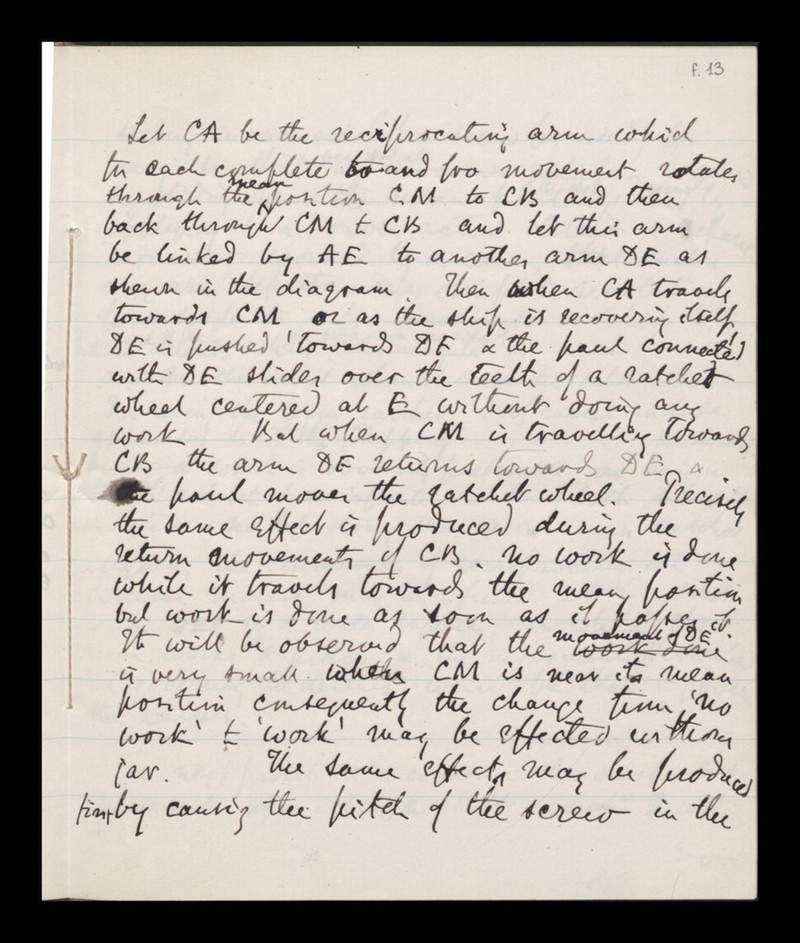 f. 13
Let CA be the reciprocating arm which
in each complete to and fro movement rotates
through the mean position CM to CB and then
back through CM to CB and let this arm
be linked by AE to another arm DE as
shewn in the diagram. Then when CA travels
towards CM or as the ship is recovering itself,
DE is pushed towards DE & the paul connected
with DE slides over the teeth of a ratchet
wheel centered at E without doing any
work But when CM is travelling towards
CB the arm DE returns towards DE, &
the paul moves the ratchet wheel. Precisely
the same effect is produced during the
return movements of CB. no work is done
while it travels towards the mean position
but work is done as soon as it passes it.
It will be observed that the work done movement of DE
is very small when CM is near its mean
position consequently the change from 'no
work' to 'work' may be effected without
jar. The same effects may be produced
by causing the pitch of the screw in the